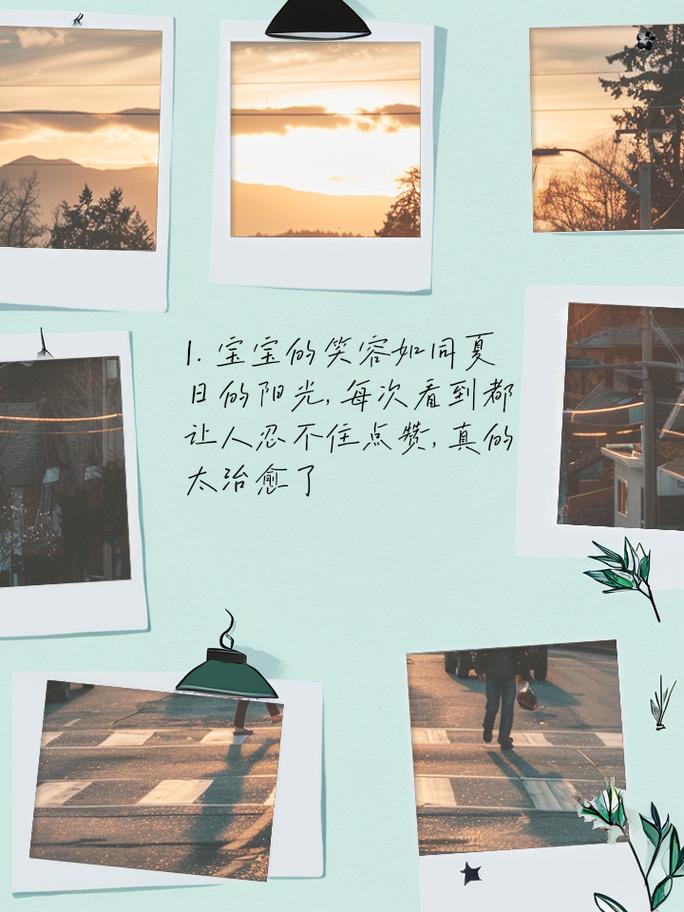 1. 宝宝的笑容如同夏
日的阳光, 每次看到都
让人忍不住点赞, 真的
太治愈了